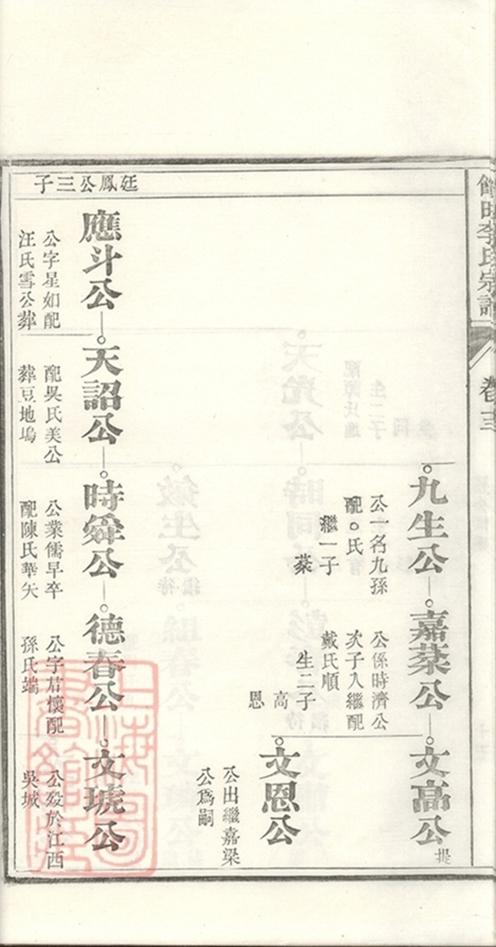 館田李氏宗譜
卷三
九生公
公一名九孫
配○氏
繼一子
葇
嘉葇公
公係時濟公
次子入繼配
戴氏順
生二子
高
恩
文高公
提
文恩公
公出繼嘉梁
公爲嗣
廷鳳公三子
應斗公
公字星如配
汪氏雪公葬
天詔公
配吳氏美公
葬豆地塢
時舜公
公業儒早卒
配陳氏華矢
德春公
公字君懷配
孫氏端
文琥公
公歿於江西
吳城